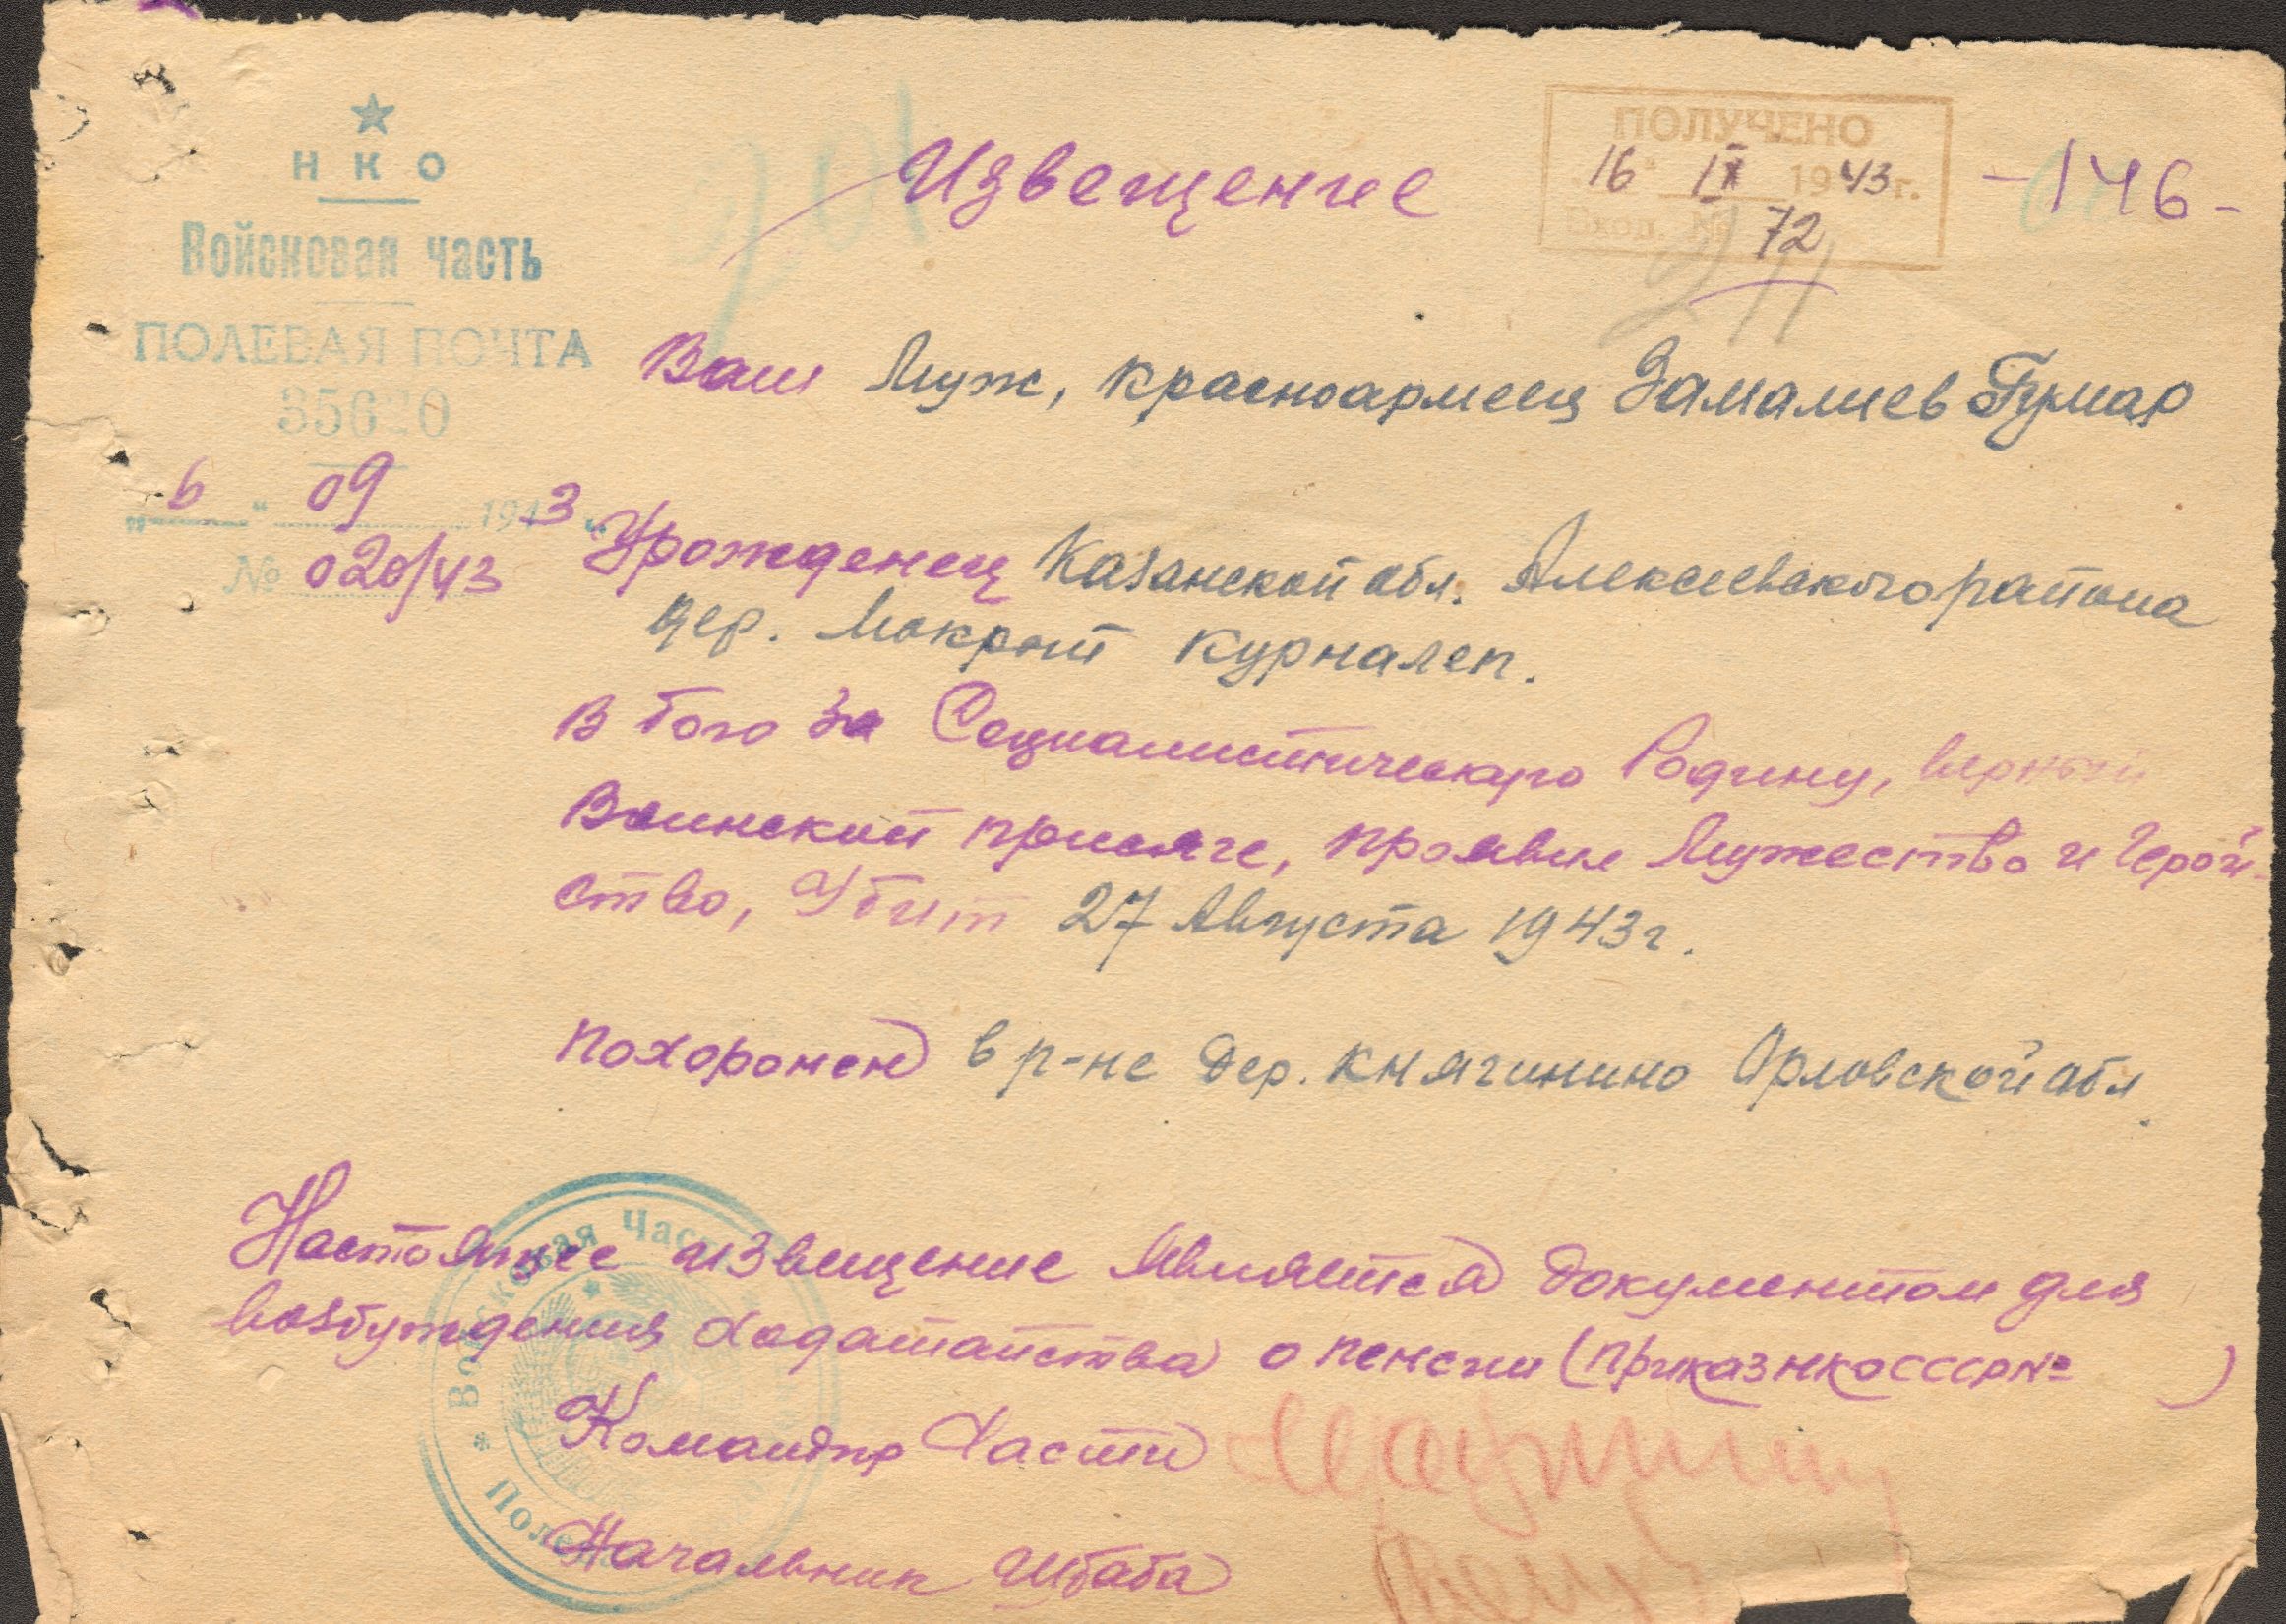 НКО
Войсковая часть
ПОЛЕВАЯ ПОЧТА
35620
"6" 09 1943
№ 020/43
ПОЛУЧЕНО
16 IX 1943 г.
Вход. № 72
-146-
201
211
Извещение
Ваш Муж, красноармеец Замалиев Гумар
Урожденец Казанской обл. Алексеевского района
дер. Мокрый Курналеп.
в бою за Социалистическую Родину, верный
Воинской присяге, проявив Мужество и Герой-
ство, Убит 27 Августа 1943 г.
похоронен в р-не дер. Княгинино Орловской обл.
Настоящее извещение является документом для
возбуждения ходатайства о пенсии (приказ НКО СССР № )
Командир Части
Начальник Штаба
Войсковая Част
Полев